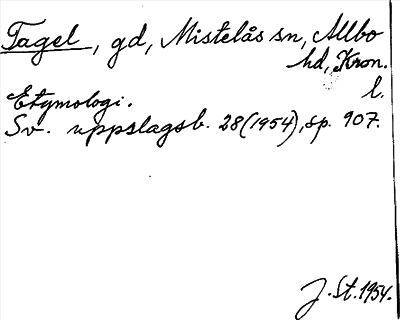 Tagel, gd, Mistelås sn, Allbo
hd, Kron.
l.
Etymologi.
Sv. uppslagsb. 28(1954), sp. 907.
J. St. 1954.